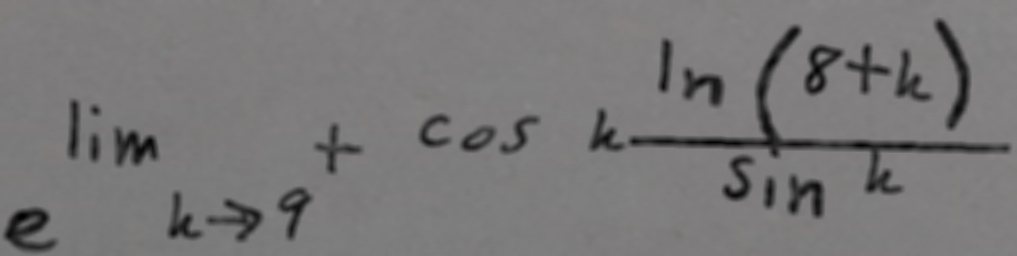 e^{\lim_{k \to 9^+} \cos k \frac{\ln(8+k)}{\sin k}}